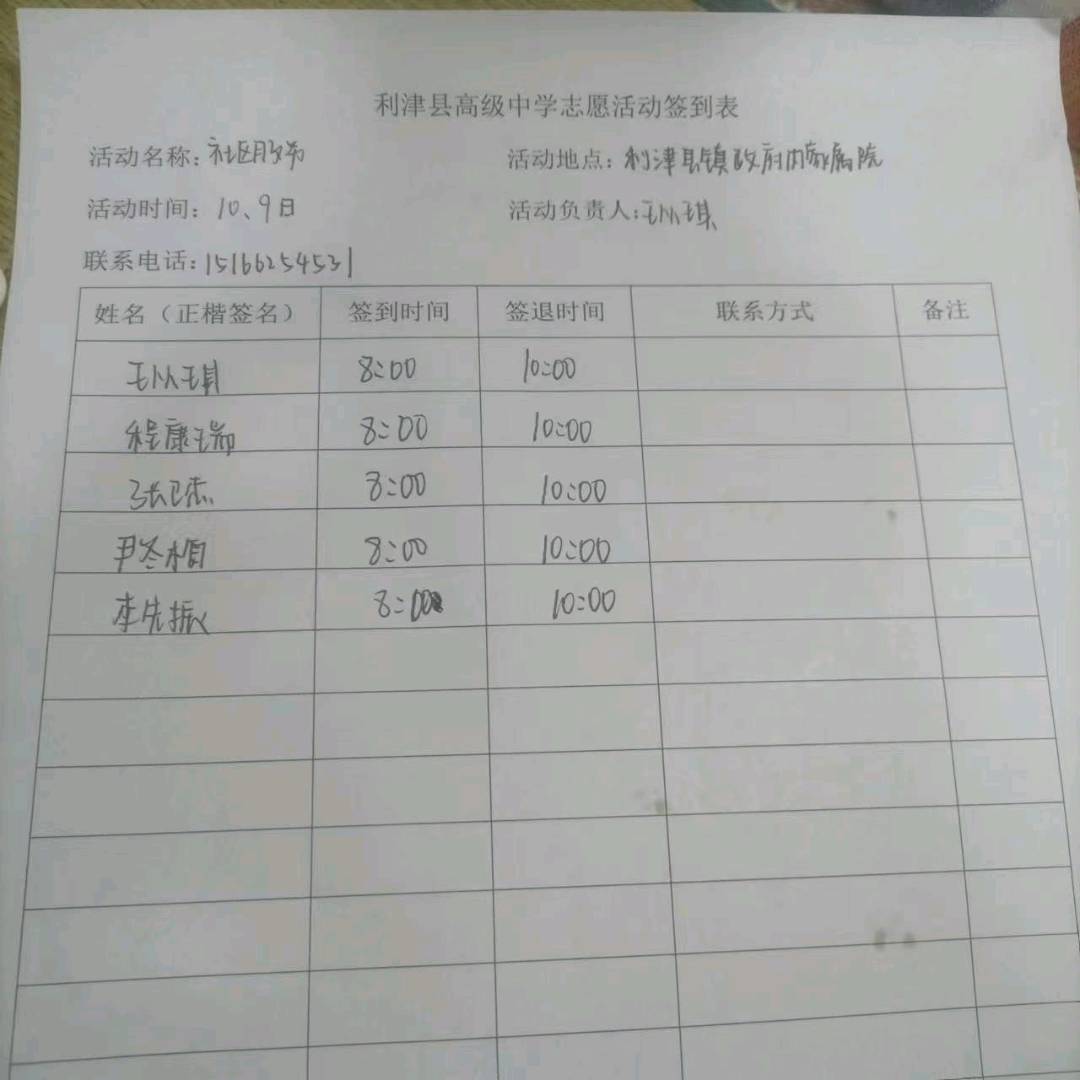 利津县高级中学志愿活动签到表
活动名称:社区服务 活动地点:利津县镇政府内家属院
活动时间:10、9日 活动负责人:王从琪
联系电话:15166254531
姓名（正楷签名） 签到时间 签退时间 联系方式 备注
王从琪 8:00 10:00
程康瑞 8:00 10:00
张卫杰 8:00 10:00
尹冬楠 8:00 10:00
李先振 8:00 10:00